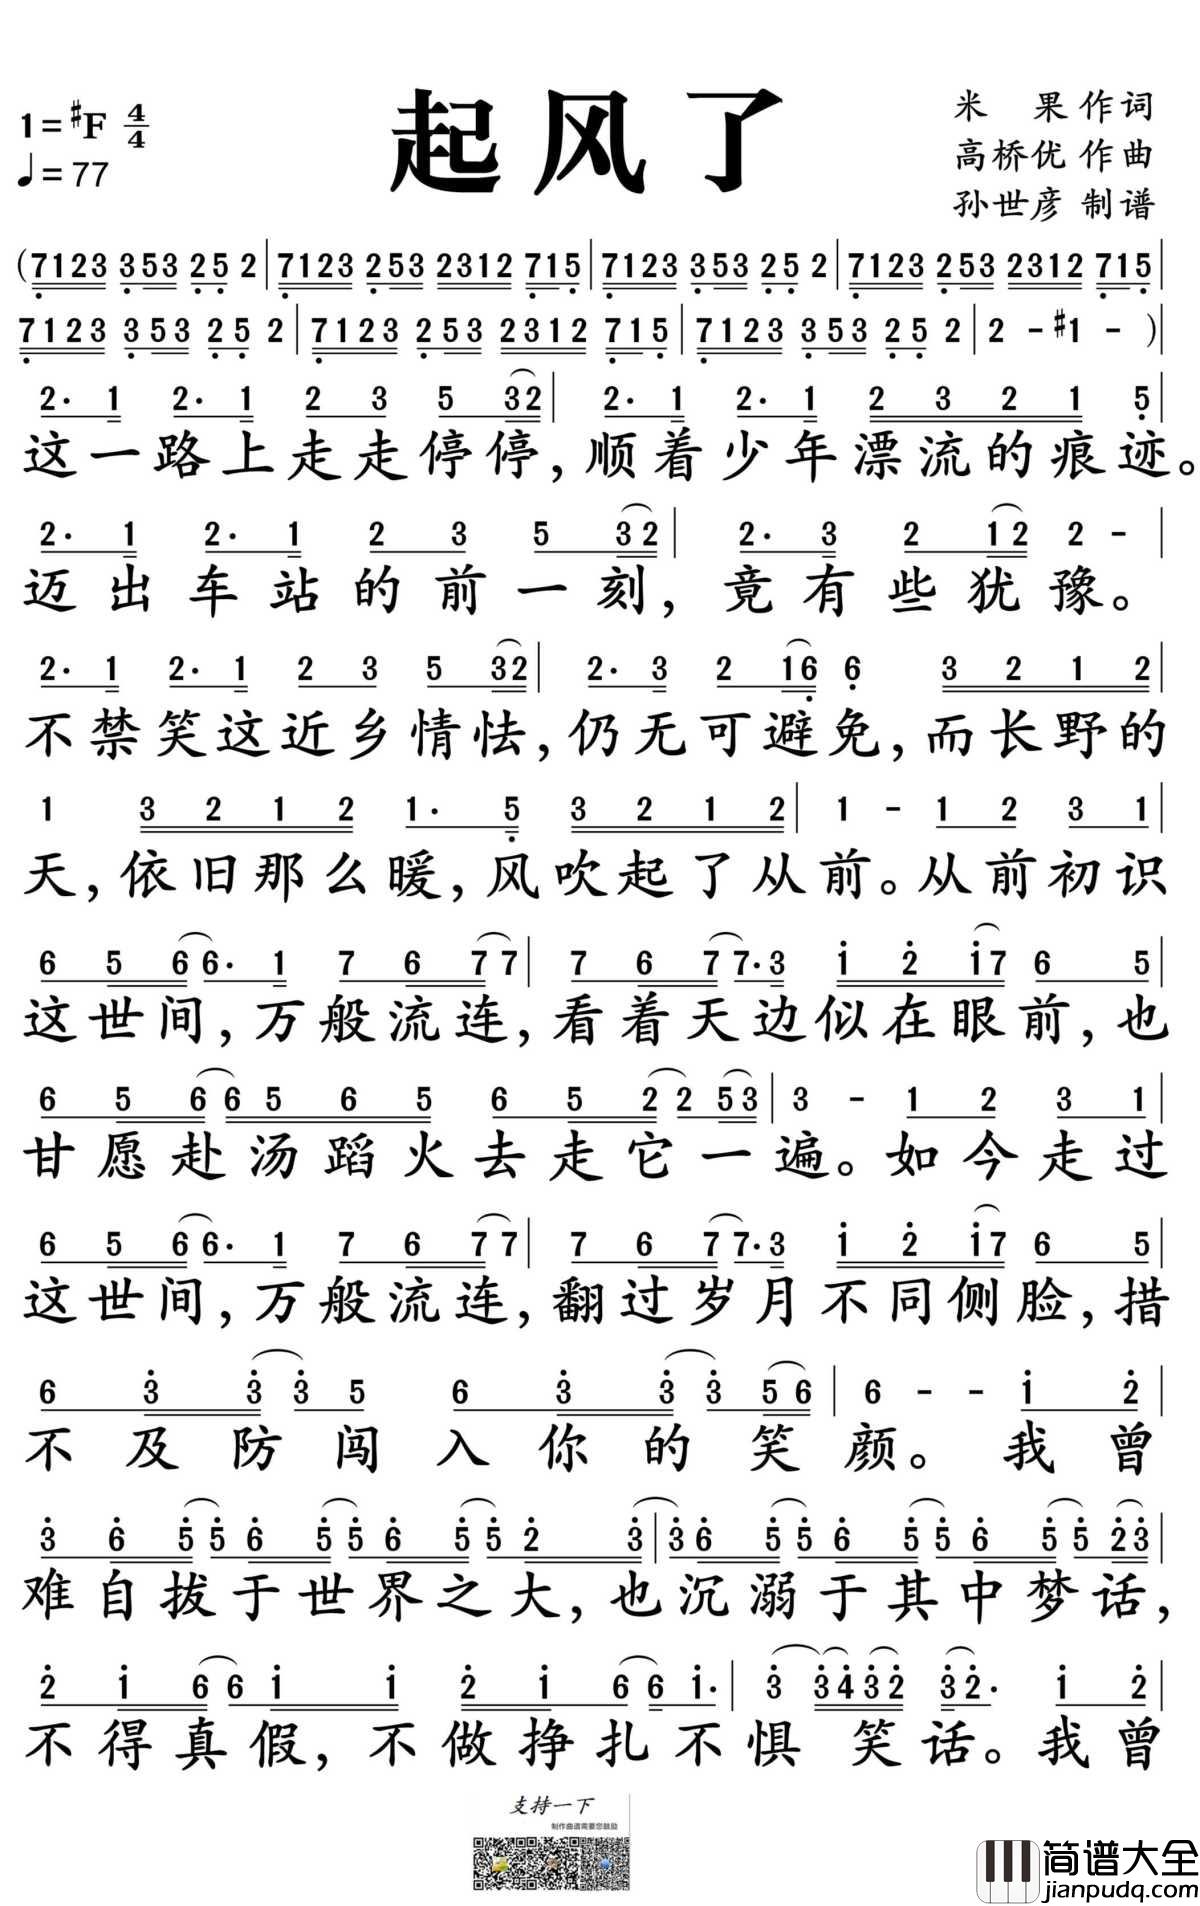 起风了
1=♯F 4/4
♩=77
米 果 作词
高桥优 作曲
孙世彦 制谱
(7123 353 25 2|7123 253 2312 715|7123 353 25 2|7123 253 2312 715|
7123 353 25 2|7123 253 2312 715|7123 353 25 2|2 - ♯1 - )|
2· 1 2· 1 2 3 5 32|2· 1 2· 1 2 3 2 1 5|
这一路上走走停停,顺着少年漂流的痕迹。
2· 1 2· 1 2 3 5 32|2· 3 2 12 2 - |
迈出车站的前一刻,竟有些犹豫。
2· 1 2· 1 2 3 5 32|2· 3 2 16 6 3 2 1 2|
不禁笑这近乡情怯,仍无可避免,而长野的
1 3 2 1 2 1· 5 3 2 1 2|1 - 1 2 3 1|
天,依旧那么暖,风吹起了从前。从前初识
6 5 66· 1 7 6 77|7 6 77·3 1 2 17 6 5|
这世间,万般流连,看着天边似在眼前,也
6 5 66 5 6 5 6 5 22 53|3 - 1 2 3 1|
甘愿赴汤蹈火去走它一遍。如今走过
6 5 66· 1 7 6 77|7 6 77·3 1 2 17 6 5|
这世间,万般流连,翻过岁月不同侧脸,措
6 3 33 5 6 3 33 56|6 - - 1 2|
不及防闯入你的笑颜。我曾
3 6 55 6 55 6 55 2 3|3 6 55 6 55 6 55 23|
难自拔于世界之大,也沉溺于其中梦话,
2 1 66 1 1 2 1 66 1·|3 3432 32· 1 2|
不得真假,不做挣扎不惧笑话。我曾
支持一下
制作曲谱需要您鼓励
简谱大全
jianpudq.com